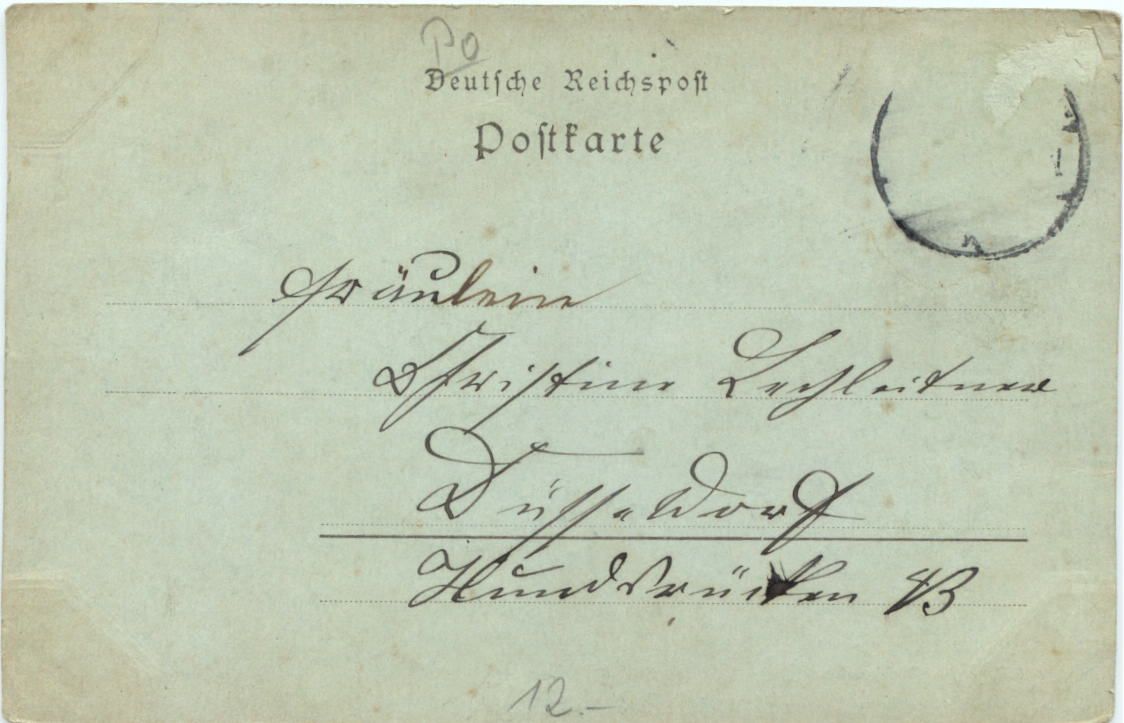 Po
Deutsche Reichspost
Postkarte
Fräulein
Christine Lechleitner
Düsseldorf
Hundsrücken 43
12.-